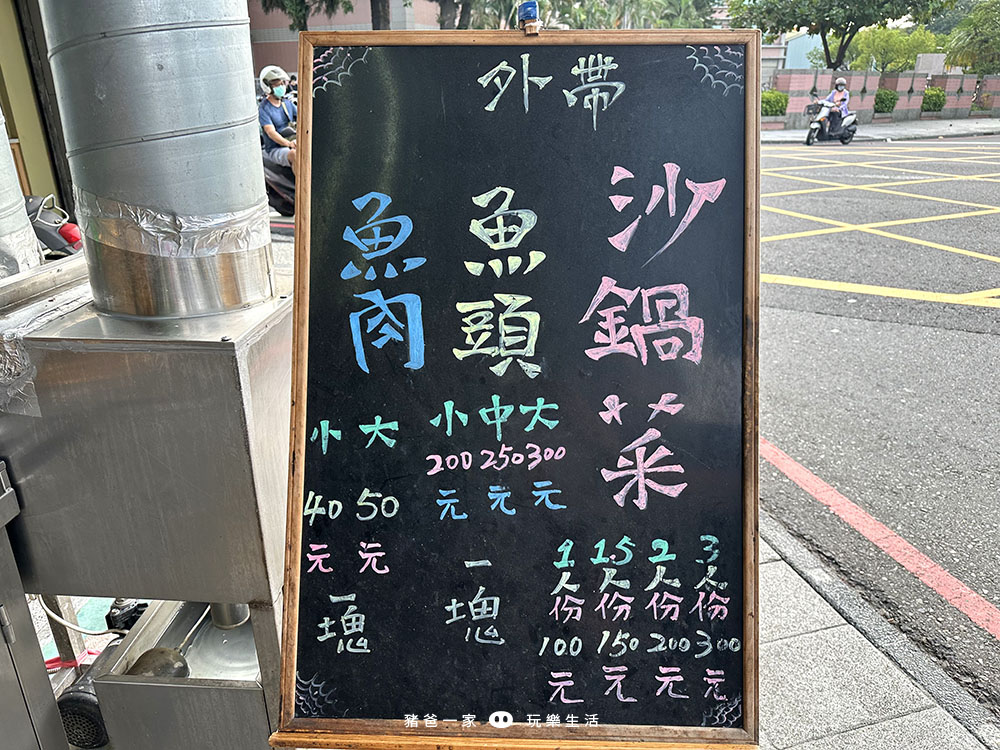 外帶
沙鍋菜
1人份100元
1.5人份150元
2人份200元
3人份300元
魚頭
小中大
200 250 300
元元元
一塊
魚肉
小大
40 50
元元
一塊
豬爸一家 玩樂生活